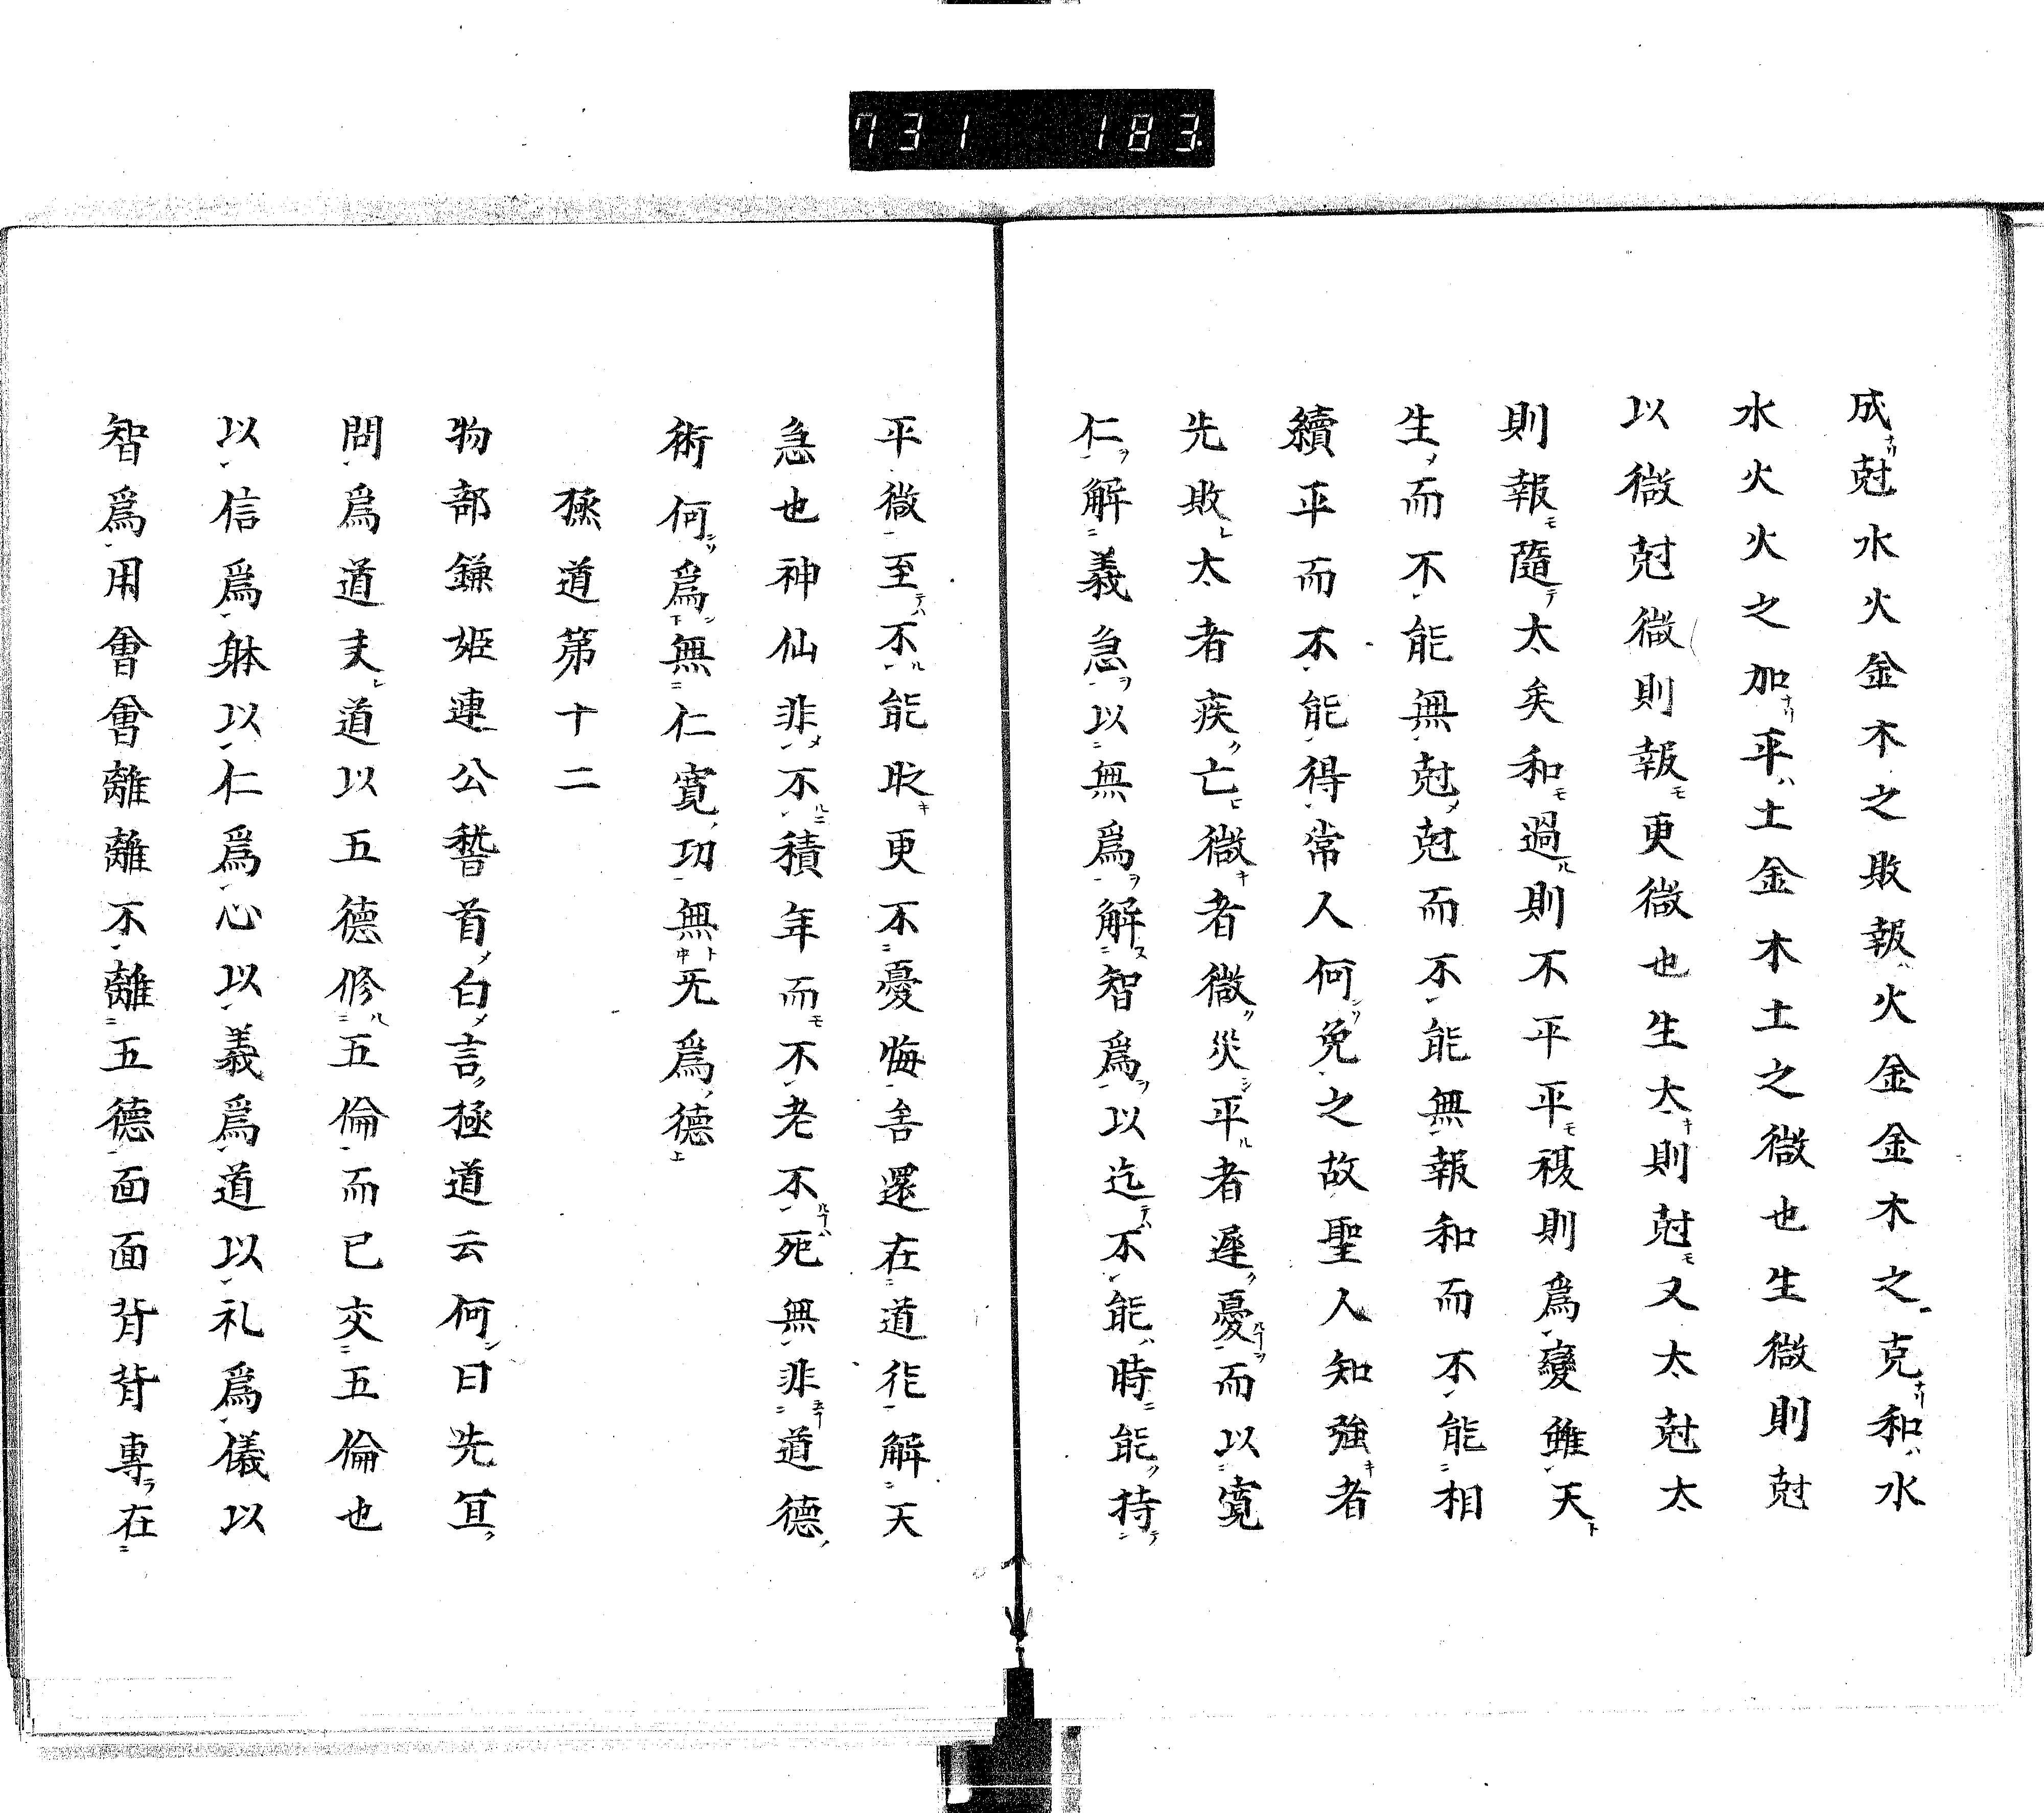 731 183
成尅水火金木之敗報火金金木之克和水
水火火之加平土金木土之微也生微則尅
以微尅微則報更微也生大則尅又太尅太
則報隨太矣和過則不平平複則爲變雖天
生而不能無尅尅而不能無報和而不能相
續平而不能得常人何免之故聖人知強者
先敗太者疾亡微者微災平者遲憂而以寬
仁解義急以無爲解智爲以迄不能時能持
平微至不能敗更不憂悔舍還在道作解天
急也神仙非不積年而不老不死無非道德
術何爲無仁寬功無无爲德
極道第十二
物部鎌姬連公誓首白言極道云何曰先宜
問爲道夫道以五德修五倫而已交五倫也
以信爲躰以仁爲心以義爲道以礼爲儀以
智爲用會會離離不離五德面面背背專在